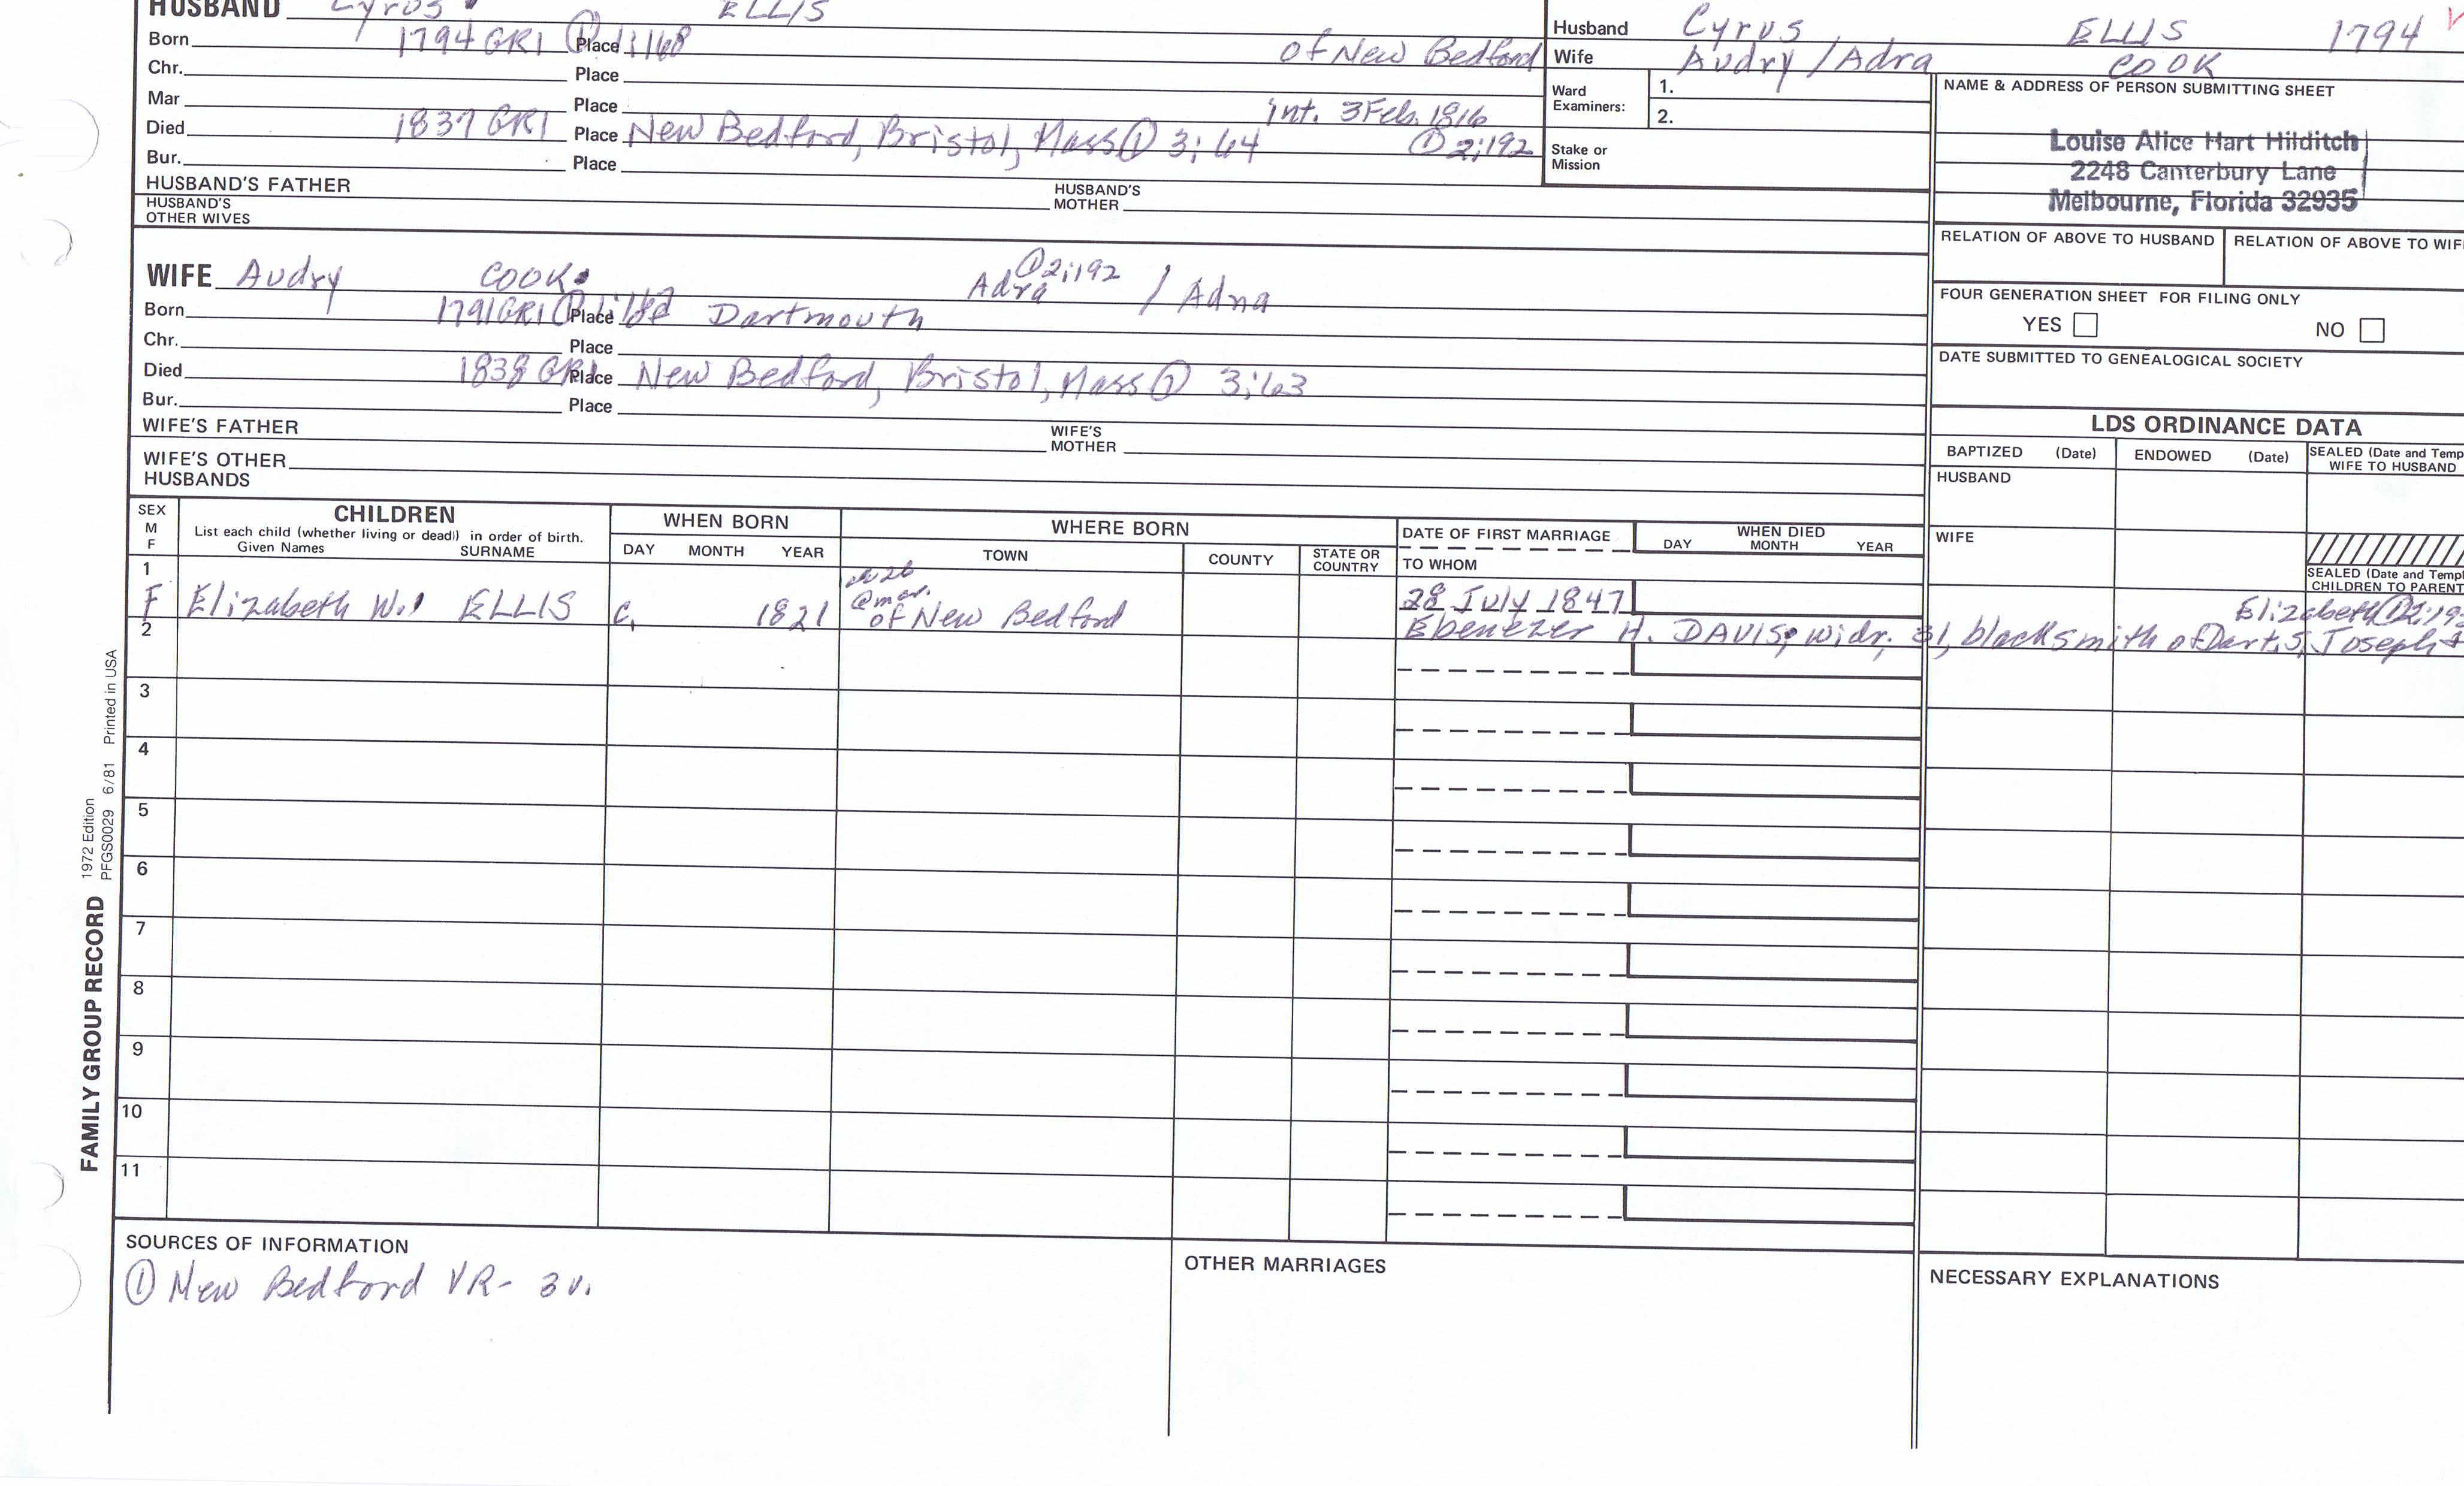 HUSBAND Cyrus ELLIS
Born 1794 GR1 ① Place 1:168 of New Bedford
Chr. Place
Mar Place Int. 3 Feb. 1816
Died 1837 GR1 Place New Bedford, Bristol, Mass ① 3:64 ① 2:192
Bur. Place
HUSBAND'S FATHER HUSBAND'S MOTHER
HUSBAND'S OTHER WIVES
Husband Cyrus ELLIS 1794
Wife Audry / Adra COOK
Ward Examiners: 1.
2.
Stake or Mission
NAME & ADDRESS OF PERSON SUBMITTING SHEET
Louise Alice Hart Hilditch
2248 Canterbury Lane
Melbourne, Florida 32935
RELATION OF ABOVE TO HUSBAND RELATION OF ABOVE TO WIF
FOUR GENERATION SHEET FOR FILING ONLY
YES NO
DATE SUBMITTED TO GENEALOGICAL SOCIETY
WIFE Audry COOK Adra ① 2:192 / Adna
Born 1791 GR1 ① Place Dartmouth
Chr. Place
Died 1838 GR1 Place New Bedford, Bristol, Mass ① 3:63
Bur. Place
WIFE'S FATHER WIFE'S MOTHER
WIFE'S OTHER HUSBANDS
LDS ORDINANCE DATA
BAPTIZED (Date) ENDOWED (Date) SEALED (Date and Temp
WIFE TO HUSBAND
HUSBAND
WIFE
SEALED (Date and Templ
CHILDREN TO PARENT
SEX M F
CHILDREN
List each child (whether living or dead) in order of birth.
Given Names SURNAME
WHEN BORN
DAY MONTH YEAR
WHERE BORN
TOWN COUNTY STATE OR COUNTRY
DATE OF FIRST MARRIAGE
TO WHOM
WHEN DIED
DAY MONTH YEAR
1 26 @ mar.
F Elizabeth W. ELLIS c. 1821 of New Bedford 28 July 1847 Elizabeth ① 2:19
2 Ebenezer H. DAVIS, widr. 31, blacksmith of Dart. S. Joseph +
3
4
5
6
7
8
9
10
11
SOURCES OF INFORMATION
① New Bedford VR - 3 v.
OTHER MARRIAGES
NECESSARY EXPLANATIONS
FAMILY GROUP RECORD 1972 Edition
PFGS0029 6/81 Printed in USA